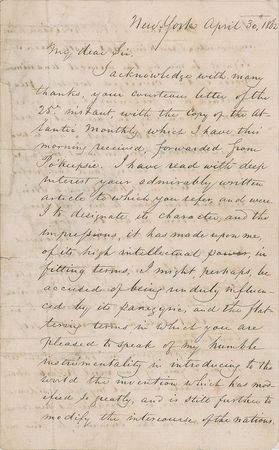 New-York April 30, 1862
My dear Sir,
I acknowledge with many
thanks, your courteous letter of the
25th instant, with the Copy of the At-
lantic Monthly, which I have this
morning received, forwarded from
Po'keepsie. I have read with deep
interest your admirably written
article to which you refer, and were
I to designate its character, and the
impressions, it has made upon me,
of its high intellectual power, in
fitting terms, I might, perhaps, be
accused of being unduly influen-
ced by its panegyric, and the flat-
tering terms in which you are
pleased to speak of my humble
instrumentality in introducing to the
world the invention which has mod-
ified so greatly, and is still further to
modify the intercourse of the nations.